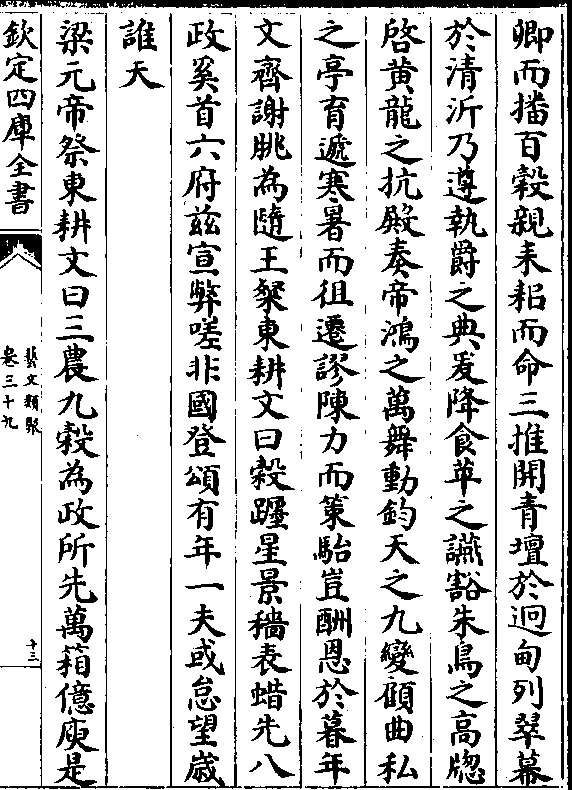 卿而播百穀親耒耜而命三推開青壇於迥甸列翠幕
於清沂乃遵執爵之典爰降食苹之讌豁朱鳥之高牕
啓黄龍之抗殿奏帝鴻之萬舞動鈞天之九變顧曲私
之亭育遞寒暑而徂遷謬陳力而策駘豈酬恩於暮年
文齊謝朓為隨王祭東耕文曰穀躔星景穡表蜡先八
政奚首六府兹宣弊嗟非國登頌有年一夫或怠望歳
誰天
梁元帝祭東耕文曰三農九榖為政所先萬箱億庾是
欽定四庫全書
藝文類聚
卷三十九
十三